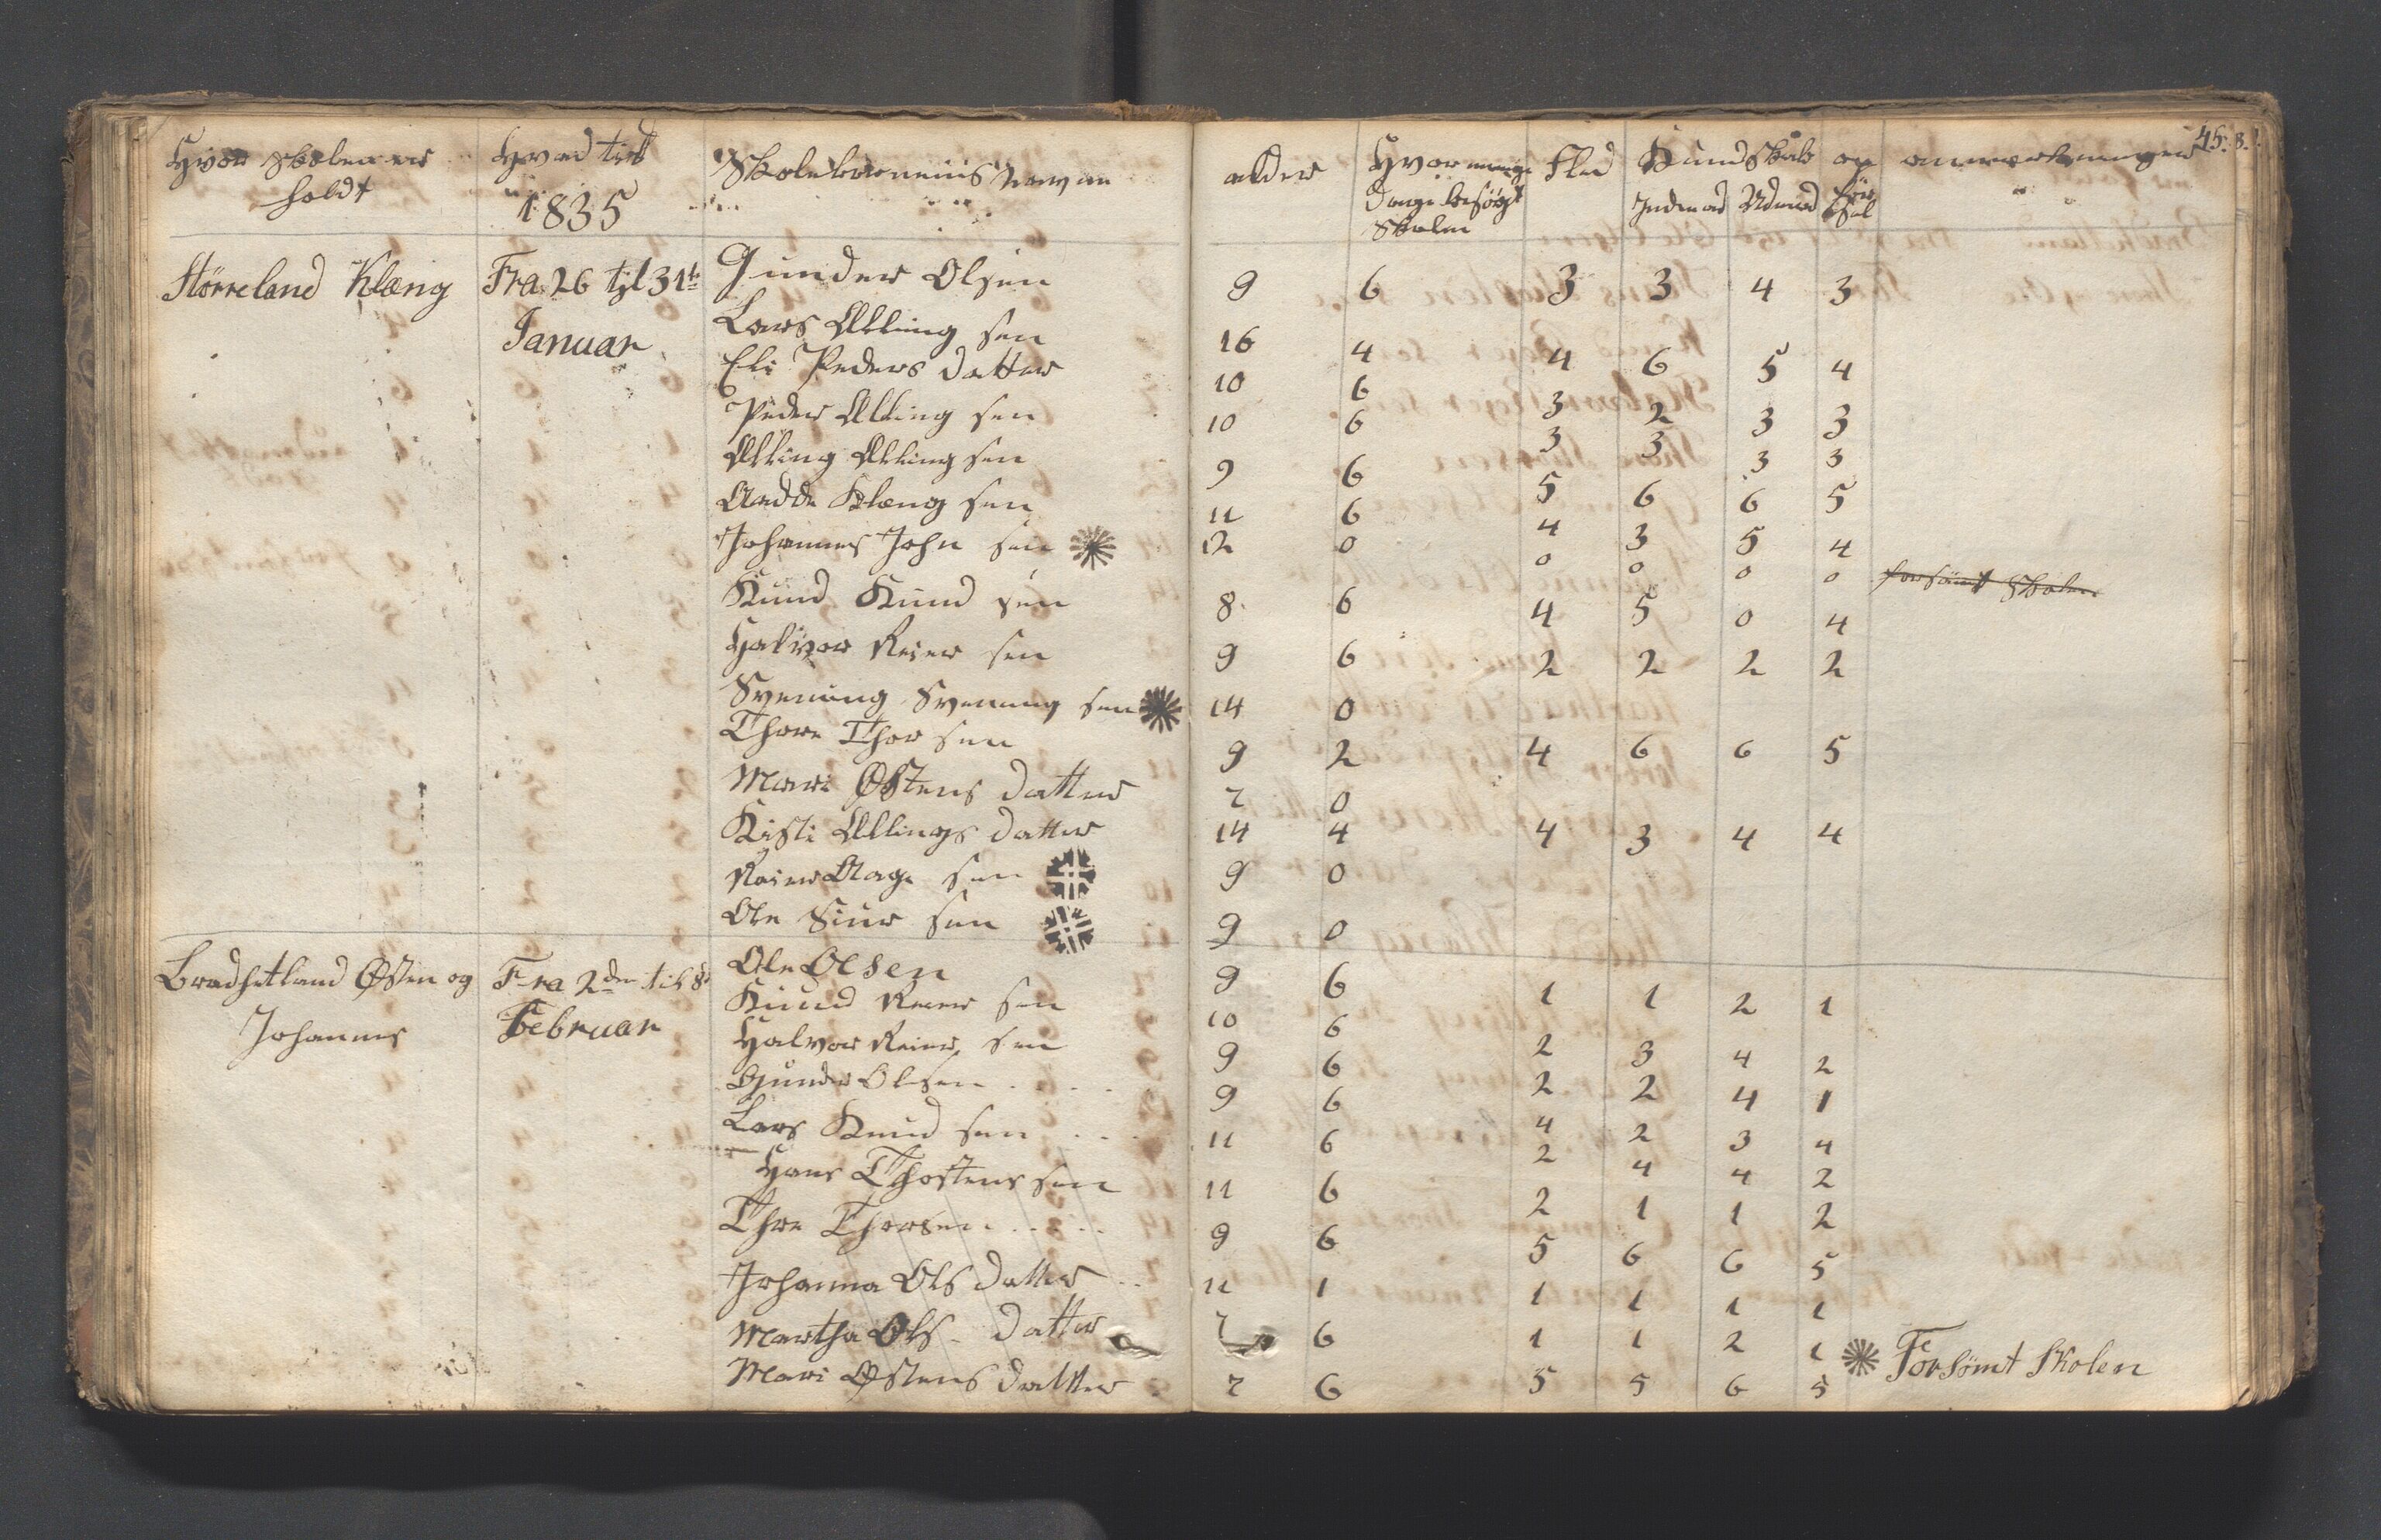 Hvor Skolen er holdt | Hvad tid 1835 | Skolebørnenis Navne | alder | Hvor mange Dage besøgt Skolen | Flid | Kundskab Indenad Udenad | og För sel | anmerkninger | 45. 8.
Størreland Klæng | Fra 26 til 31te Januar | Gunder Olsen | 9 | 6 | 3 | 3 | 4 | 3
Lars Ølling sen | 16 | 4 | 4 | 6 | 5 | 4
Eli Peders datter | 10 | 6 | 3 | 2 | 3 | 3
Peder Ølling sen | 10 | 6 | 3 | 3 | 3 | 3
Ølling Ølling sen | 9 | 6 | 5 | 6 | 6 | 5
Aadde Klæng sen | 11 | 6 | 4 | 3 | 5 | 4
Johannes John sen | 12 | 0 | 0 | 0 | 0 | 0 | forsömt Skolen
Knud Knud sen | 8 | 6 | 4 | 5 | 0 | 4
Halvor Reier sen | 9 | 6 | 2 | 2 | 2 | 2
Svenung Svenung sen | 14 | 0
Thore Thor sen | 9 | 2 | 4 | 6 | 6 | 5
Mari Østens datter | 7 | 0
Kisti Øllings datter | 14 | 4 | 4 | 3 | 4 | 4
Reier Aage sen | 9 | 0
Ole Siur sen | 9 | 0
Bradhetland Østen og Johannes | Fra 2den til 8de Februar | Ole Olsen | 9 | 6 | 1 | 1 | 2 | 1
Knud Reier sen | 10 | 6 | 2 | 3 | 4 | 2
Halvor Reier sen | 9 | 6 | 2 | 2 | 4 | 1
Gunder Olsen | 9 | 6 | 4 | 2 | 3 | 4
Lars Knud sen | 11 | 6 | 2 | 4 | 4 | 2
Hans Thostens sen | 11 | 6 | 2 | 1 | 1 | 2
Thore Thorsen | 9 | 6 | 5 | 6 | 6 | 5
Johanna Ols datter | 11 | 1 | 1 | 1 | 1 | 1
Martha Ols datter | 7 | 6 | 1 | 1 | 2 | 1 | Forsömt Skolen
Mari Østens datter | 7 | 6 | 5 | 5 | 6 | 5